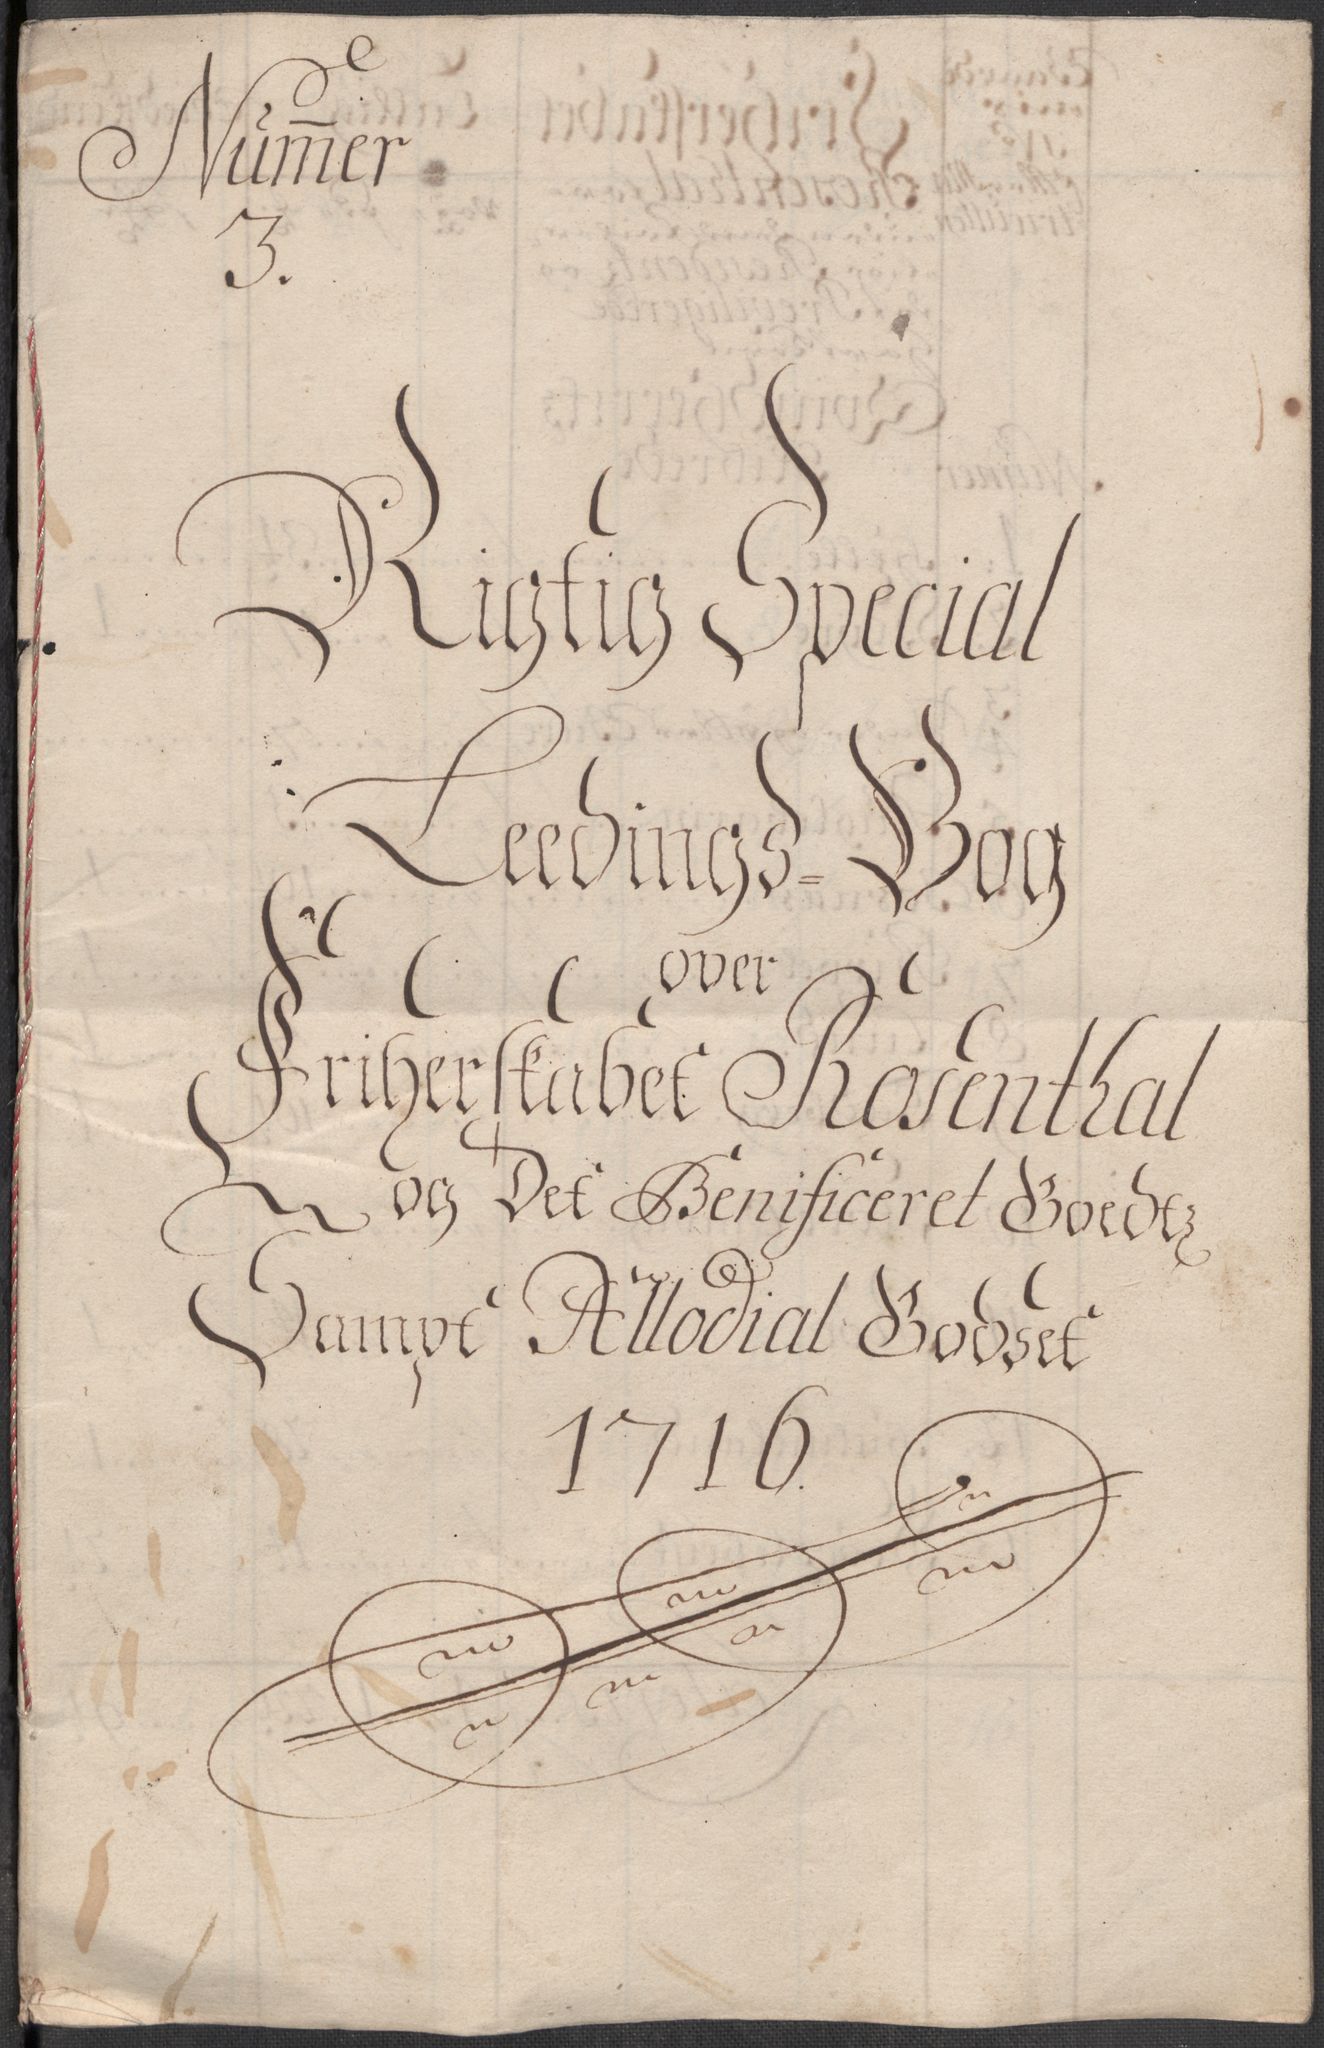 Num̅er
3.
Rigtig Special
Leedings=Bog
over
Friherskabet Rosenthal
og Det Benificeret Goedtz
Sampt Allodial Godset
1716.